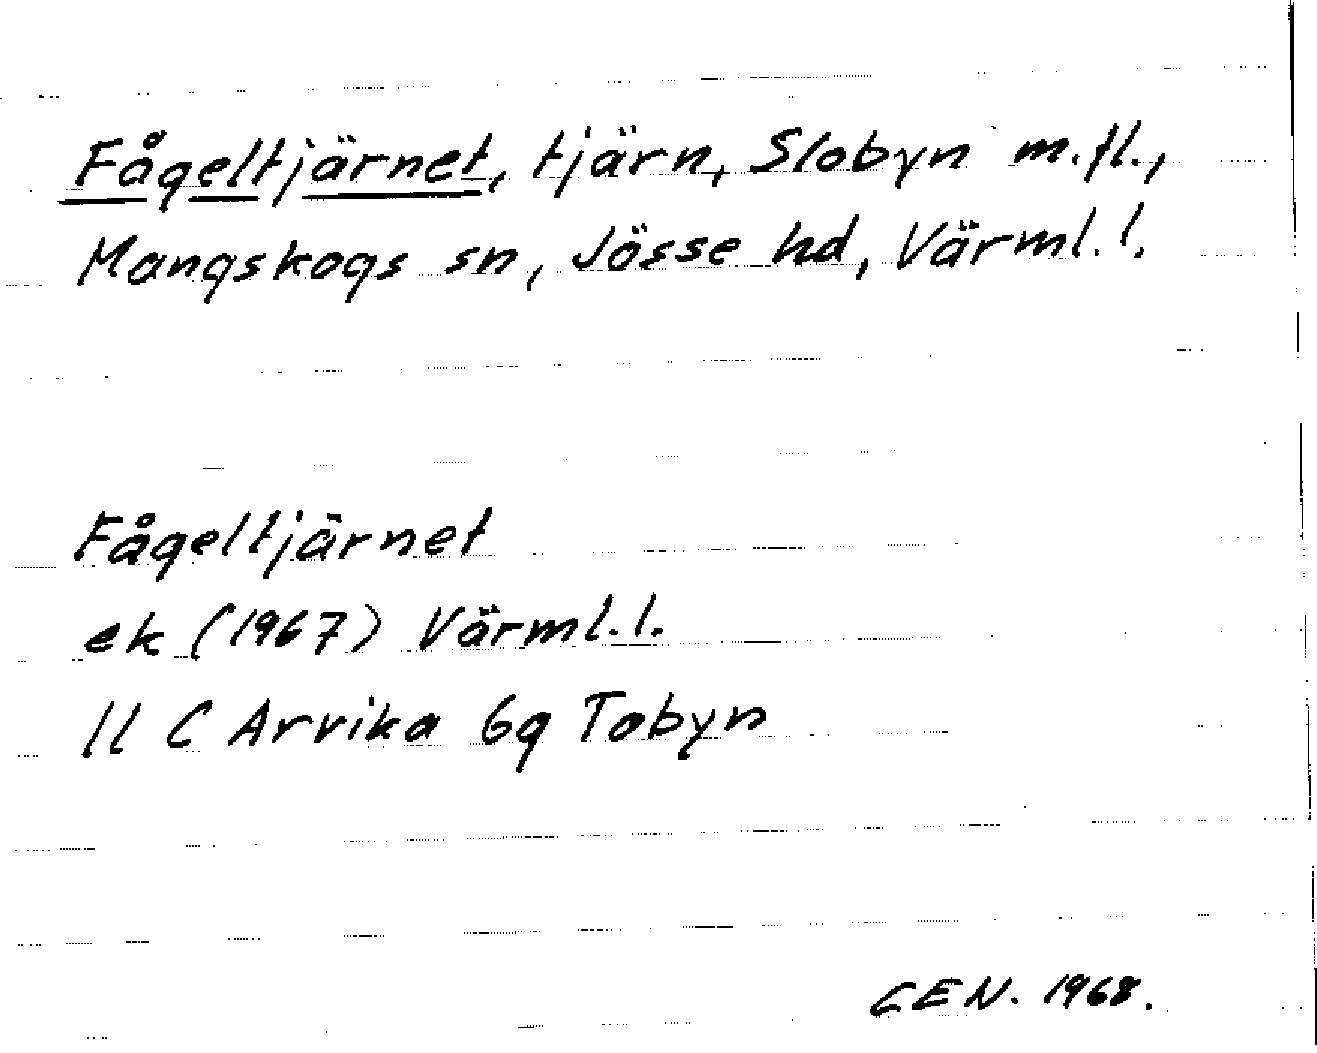 Fågeltjärnet, tjärn, Slobyn m.fl.,
Mangskogs sn, Jösse hd, Värml. l.
Fågeltjärnet
ek (1967) Värml. l.
11 C Arvika 6g Tobyn
GEN. 1968.